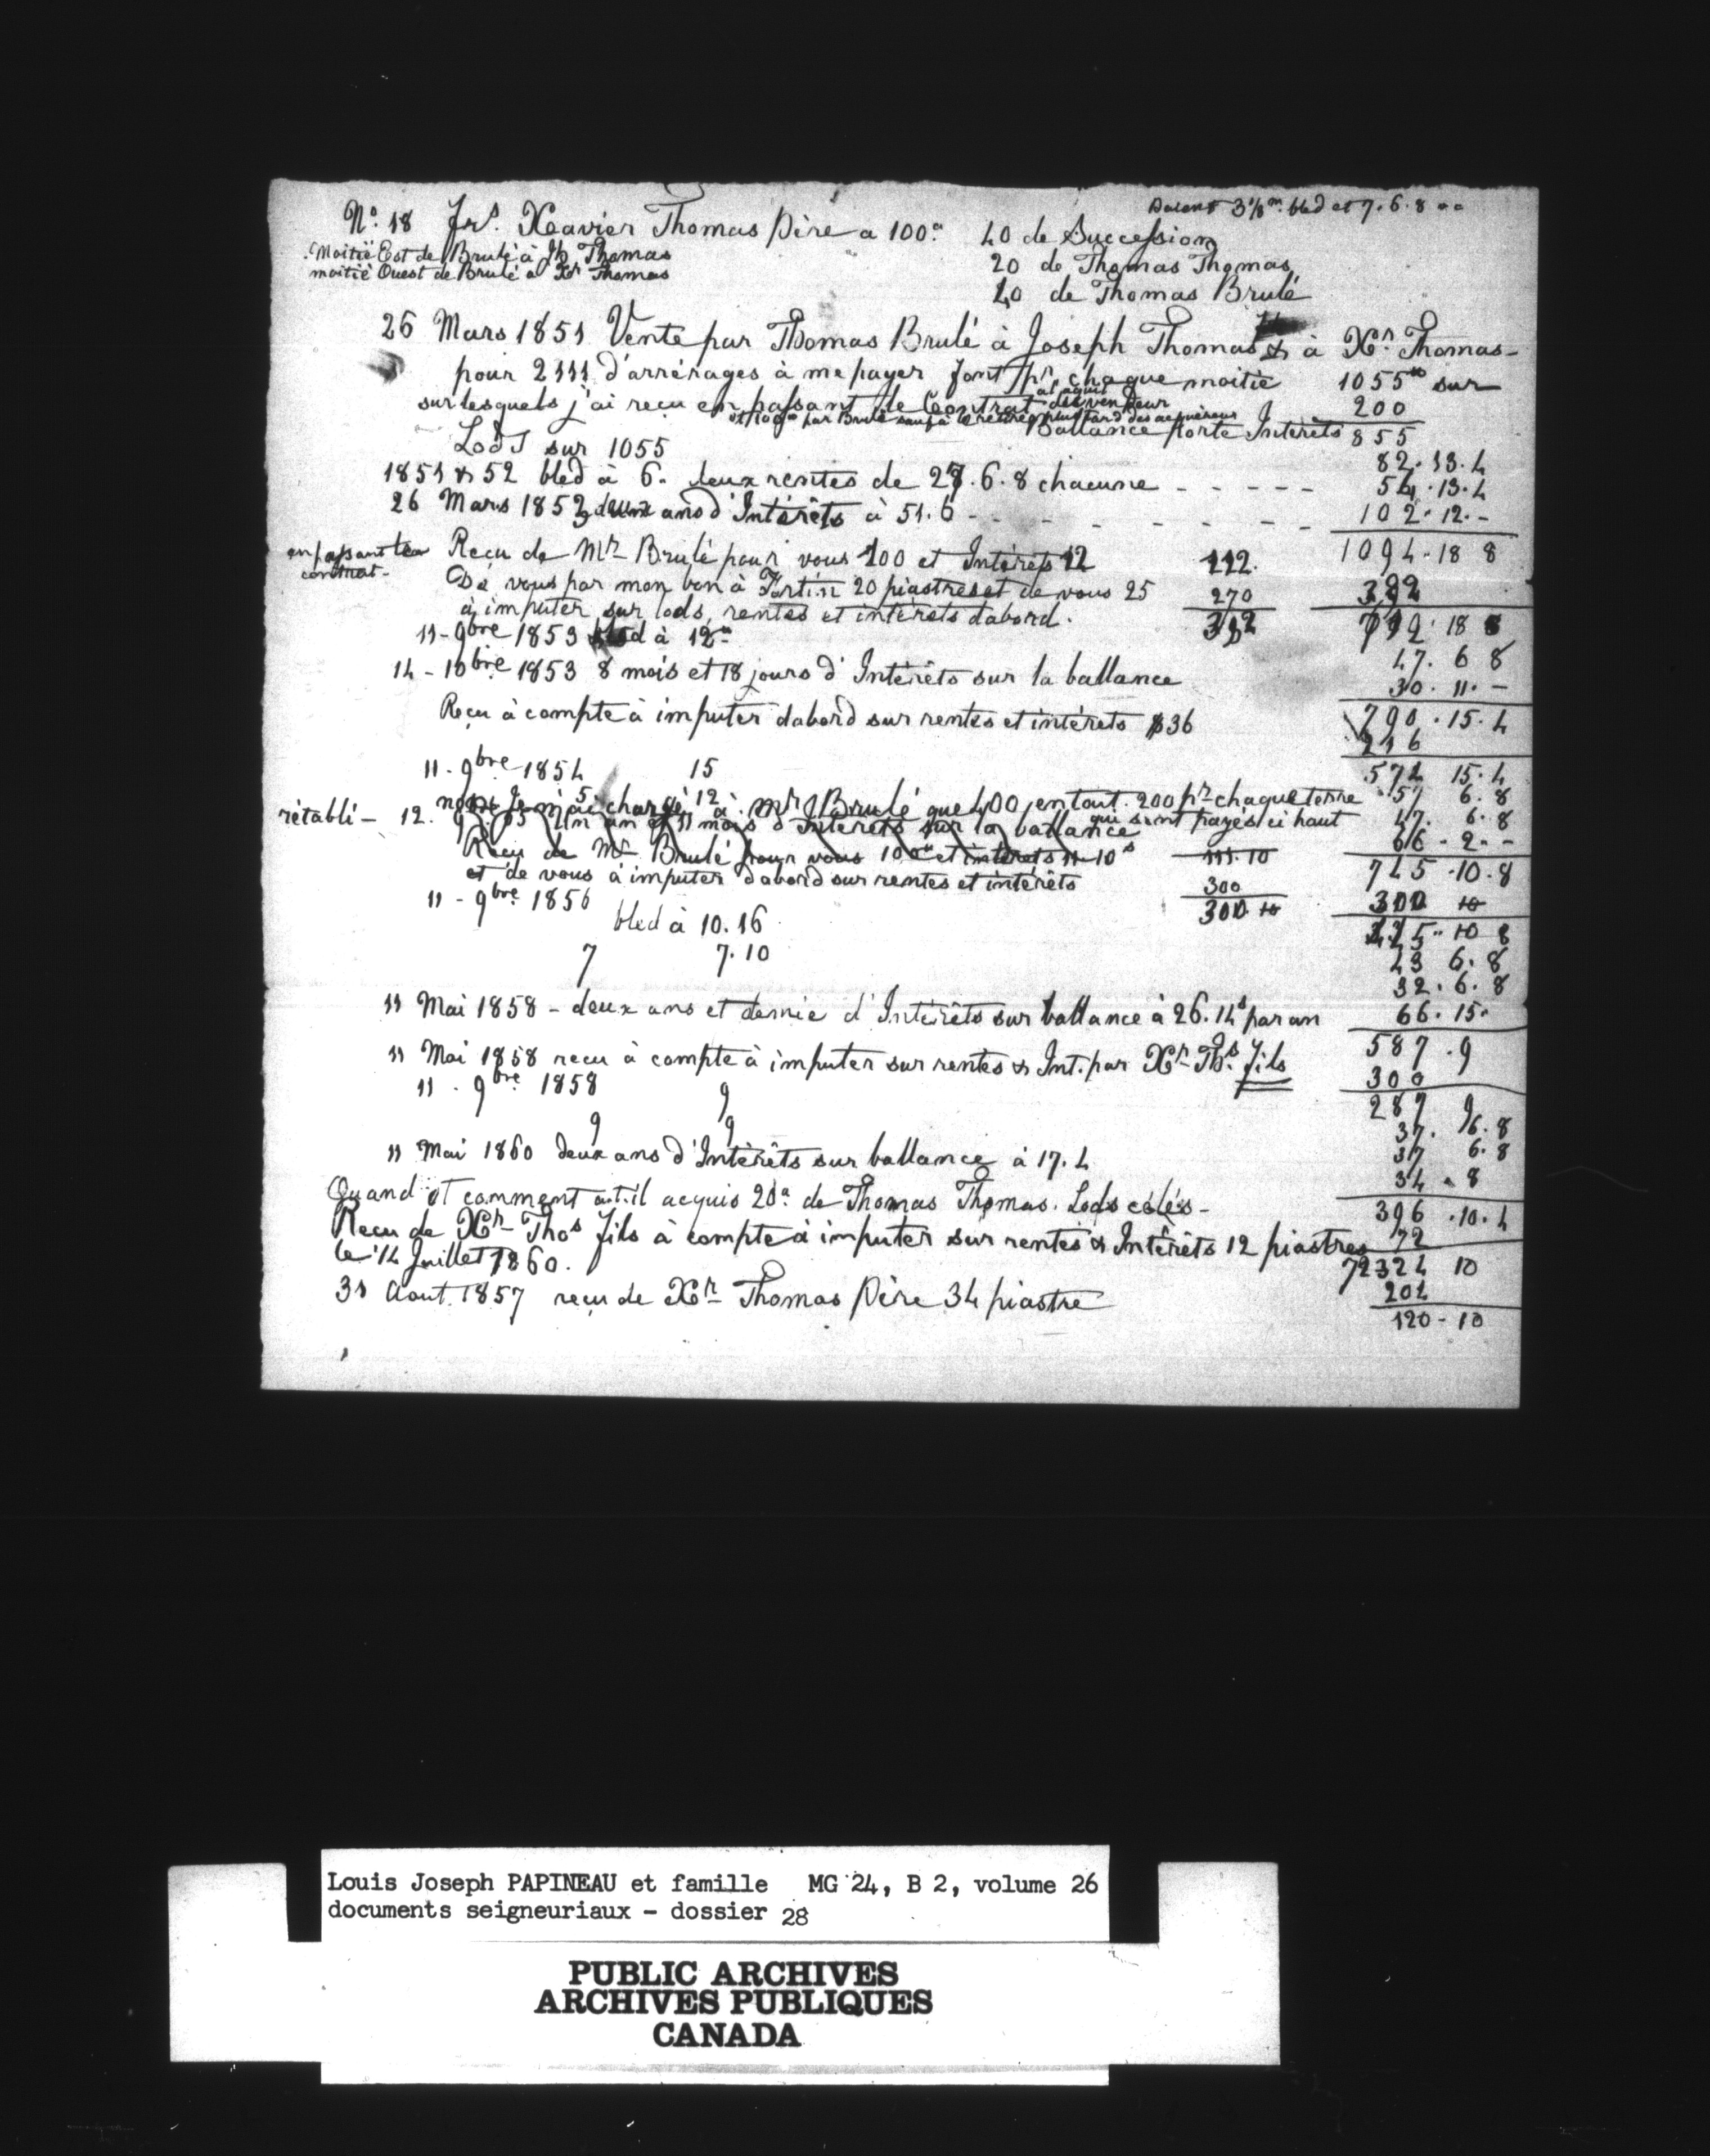 Doivent 3⅓ m. bled et 7.6.8
N.o 18 Frs. Xeavier Thomas Père a 100.a 40 de Succession
Moitié Est de Brulé à Jh Thomas
moitié Ouest de Brulé a Xr Thomas
20 de Thomas Thomas
40 de Thomas Brulé
26 Mars 1851 Vente par Thomas Brulé à Joseph Thomas & à Xr. Thomas -
pour 2111 d'arrérages à me payer font pr. chaque moitié 1055 sur
sur lesquels j'ai reçu en passant le Contrat du vendeur 200
Ballance porte Intérêts 855
Lods sur 1055 82.13.4
1851 & 52 bled à 6. deux rentes de 27.6.8 chacune - - - - - 54.13.4
26 Mars 1853 deux ans d'Intérêts à 51.6 - - - - - - - 102.12.-
en passant le contrat - Reçu de Mr Brulé pour vous 100 et Intérêts 12 112. 1094.18 8
De vous par mon bon à Fortin 20 piastres et de vous 25 270
à imputer sur lods, rentes et intérêts d'abord. 382
11 - 9bre 1853 bled à 12 47. 6 8
14 - 10bre 1853 8 mois et 18 jours d'Intérêts sur la ballance 30. 11. -
Reçu à compte à imputer d'abord sur rentes et intérêts $36 790.15.4
216
11 - 9bre 1854 15 574 15.4
5 12 57 6.8
non Je n'ai chargé à Mr Brulé que 400 en tout. 200 pr chaque terre qui sont payés ci haut 47. 6.8
rétabli - 12. 9 55 Un an et 11 mois d'Intérêts sur la ballance 66 - 2 - -
Reçu de Mr Brulé pour vous 100 et intérêts 11-10s 111.10 745.10.8
et de vous à imputer d'abord sur rentes et intérêts 300
300 10 300 10
11 - 9bre 1856 bled à 10.16 445 10 8
43 6.8
7 7.10 32.6.8
11 Mai 1858 - deux ans et demie d'Intérêts sur ballance à 26.14s par an 66.15.
587.9
11 Mai 1858 reçu à compte à imputer sur rentes & Int. par Xr Ths. fils 300
11 . 9bre 1858 9 287 9
37. 6.8
9 9 37 6.8
11 Mai 1860 deux ans d'Intérêts sur ballance à 17.4 34 . 8
Quand et comment a-t-il acquis 20a de Thomas Thomas. Lods célés - 396.10.4
Reçu de Xr Thos fils à compte à imputer sur rentes & Intérêts 12 piastres 72
le 14 Juillet 1860. 72 324 10
31 Aout 1857 reçu de Xr Thomas Père 34 piastre 204
120 - 10
Louis Joseph PAPINEAU et famille MG 24, B 2, volume 26
documents seigneuriaux - dossier 28
PUBLIC ARCHIVES
ARCHIVES PUBLIQUES
CANADA